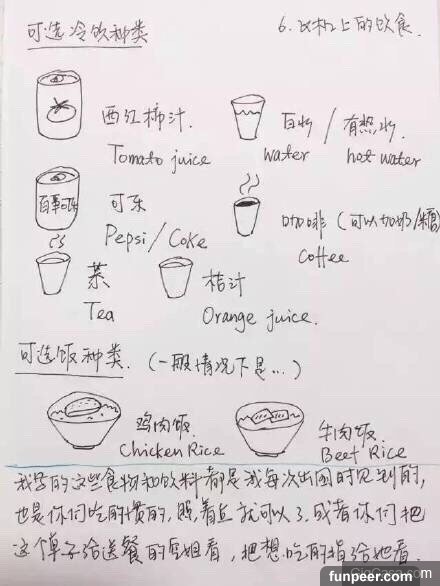 可选冷饮种类
6. 飞机上的饮食.
西红柿汁.
Tomato juice
白水 / 有热水.
water
hot water
百事可乐
可乐
Pepsi / Coke
咖啡 (可以加奶/糖)
Coffee
茶
Tea
桔汁
Orange juice.
可选饭种类. (一般情况下是...)
鸡肉饭
Chicken Rice
牛肉饭.
Beef Rice
我写的这些食物和饮料都是我每次出国时见到的,
也是你们吃的惯的, 照着点就可以了. 或者你们把
这个单子给送餐的空姐看, 把想吃的指给她看.
funpeer.com